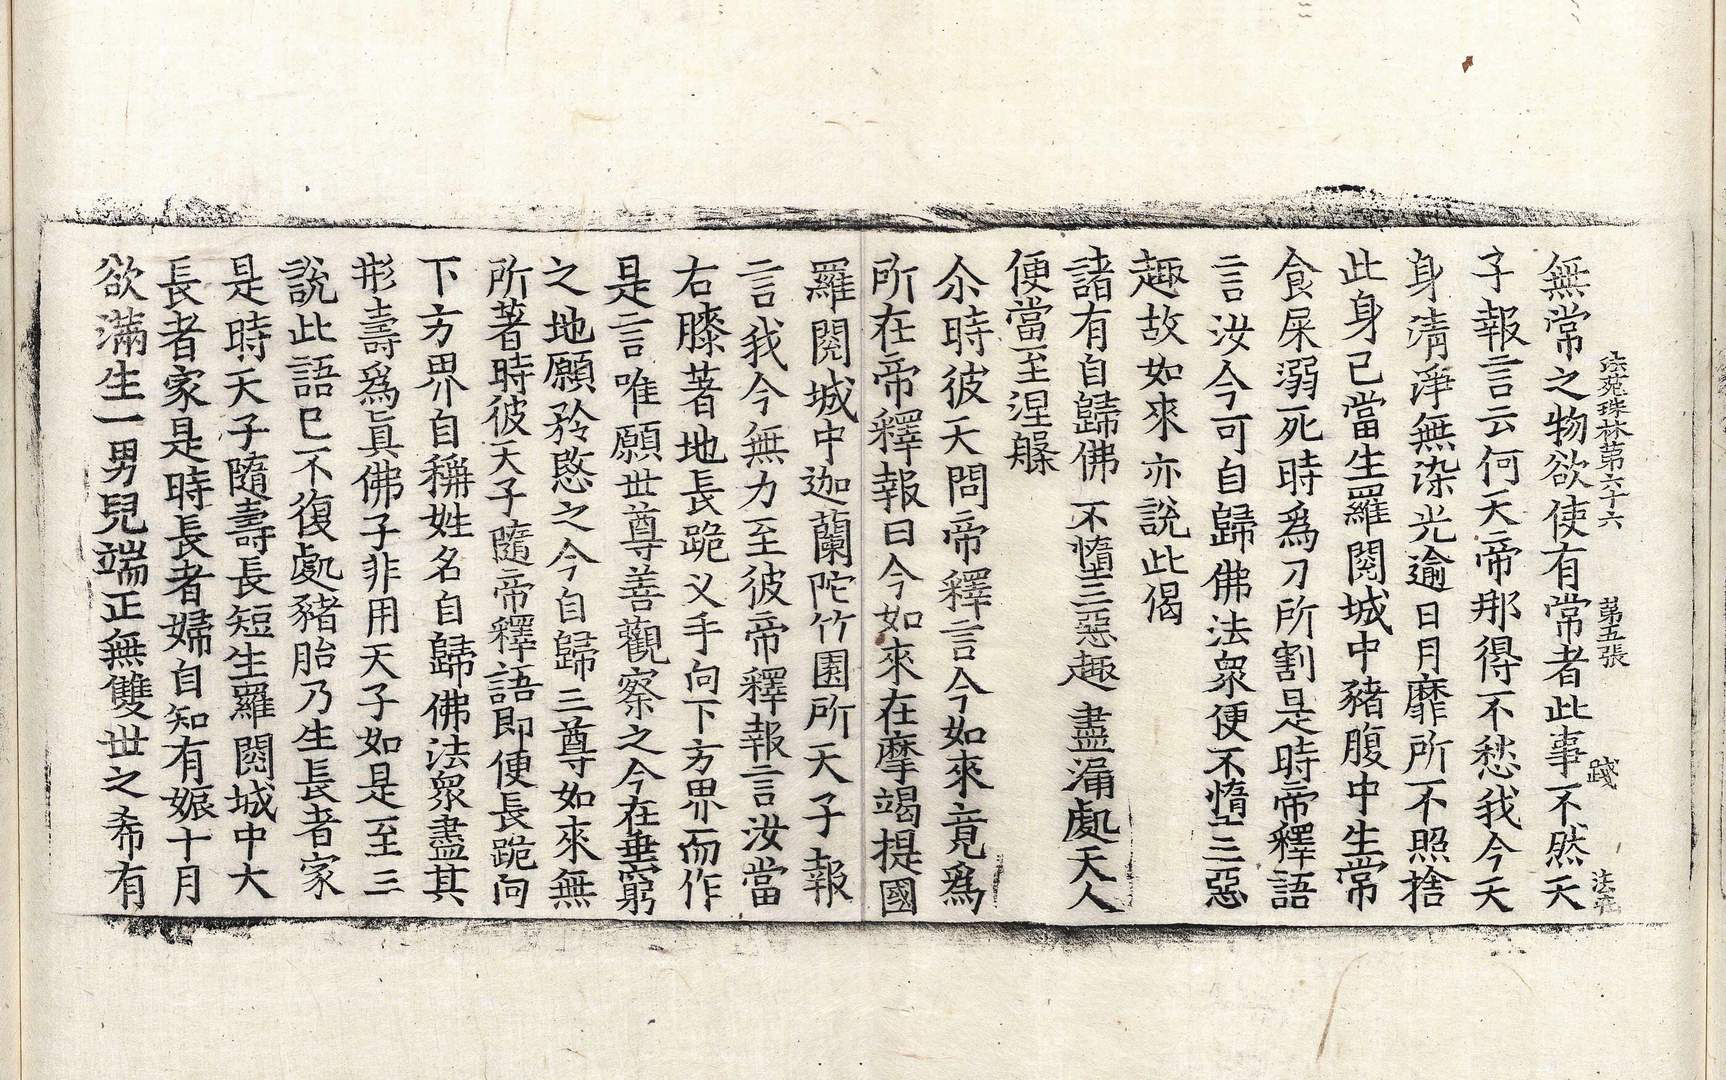 法苑珠林第六十六 第五張 踐
無常之物欲使有常者此事不然天
子報言云何天帝那得不愁我今天
身清淨無染光逾日月靡所不照捨
此身已當生羅閱城中豬腹中生常
食屎溺死時爲刀所割是時帝釋語
言汝今可自歸佛法衆便不惰三惡
趣故如來亦說此偈
諸有自歸佛 不惰三惡趣 盡漏處天人
便當至涅槃
尒時彼天問帝釋言今如來竟爲
所在帝釋報曰今如來在摩竭提國
羅閱城中迦蘭陀竹園所天子報
言我今無力至彼帝釋報言汝當
右膝著地長跪叉手向下方界而作
是言唯願世尊善觀察之今在垂窮
之地願矜愍之今自歸三尊如來無
所著時彼天子隨帝釋語即便長跪向
下方界自稱姓名自歸佛法衆盡其
形壽爲眞佛子非用天子如是至三
說此語已不復處豬胎乃生長者家
是時天子隨壽長短生羅閱城中大
長者家是時長者婦自知有娠十月
欲滿生一男兒端正無雙世之希有